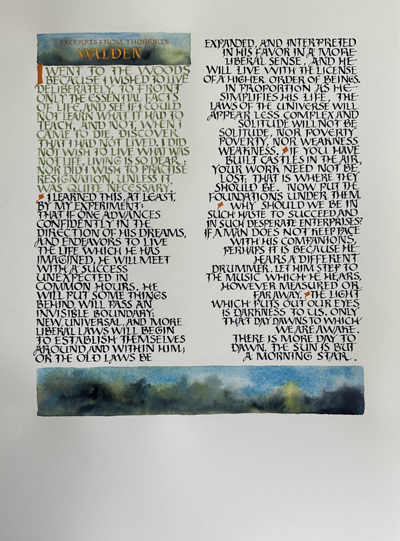 EXCERPTS FROM THOREAU'S
WALDEN
I WENT TO THE WOODS
BECAUSE I WISHED TO LIVE
DELIBERATELY, TO FRONT
ONLY THE ESSENTIAL FACTS
OF LIFE, AND SEE IF I COULD
NOT LEARN WHAT IT HAD TO
TEACH, AND NOT, WHEN I
CAME TO DIE, DISCOVER
THAT I HAD NOT LIVED. I DID
NOT WISH TO LIVE WHAT WAS
NOT LIFE, LIVING IS SO DEAR;
NOR DID I WISH TO PRACTISE
RESIGNATION, UNLESS IT
WAS QUITE NECESSARY.
I LEARNED THIS, AT LEAST,
BY MY EXPERIMENT:
THAT IF ONE ADVANCES
CONFIDENTLY IN THE
DIRECTION OF HIS DREAMS,
AND ENDEAVORS TO LIVE
THE LIFE WHICH HE HAS
IMAGINED, HE WILL MEET
WITH A SUCCESS
UNEXPECTED IN
COMMON HOURS. HE
WILL PUT SOME THINGS
BEHIND, WILL PASS AN
INVISIBLE BOUNDARY;
NEW, UNIVERSAL, AND MORE
LIBERAL LAWS WILL BEGIN
TO ESTABLISH THEMSELVES
AROUND AND WITHIN HIM;
OR THE OLD LAWS BE
EXPANDED, AND INTERPRETED
IN HIS FAVOR IN A MORE
LIBERAL SENSE, AND HE
WILL LIVE WITH THE LICENSE
OF A HIGHER ORDER OF BEINGS.
IN PROPORTION AS HE
SIMPLIFIES HIS LIFE, THE
LAWS OF THE UNIVERSE WILL
APPEAR LESS COMPLEX AND
SOLITUDE WILL NOT BE
SOLITUDE, NOR POVERTY
POVERTY, NOR WEAKNESS
WEAKNESS. IF YOU HAVE
BUILT CASTLES IN THE AIR,
YOUR WORK NEED NOT BE
LOST; THAT IS WHERE THEY
SHOULD BE. NOW PUT THE
FOUNDATIONS UNDER THEM.
WHY SHOULD WE BE IN
SUCH HASTE TO SUCCEED AND
IN SUCH DESPERATE ENTERPRISES?
IF A MAN DOES NOT KEEP PACE
WITH HIS COMPANIONS,
PERHAPS IT IS BECAUSE HE
HEARS A DIFFERENT
DRUMMER. LET HIM STEP TO
THE MUSIC WHICH HE HEARS,
HOWEVER MEASURED OR
FAR AWAY. THE LIGHT
WHICH PUTS OUT OUR EYES
IS DARKNESS TO US. ONLY
THAT DAY DAWNS TO WHICH
WE ARE AWAKE.
THERE IS MORE DAY TO
DAWN. THE SUN IS BUT
A MORNING STAR.